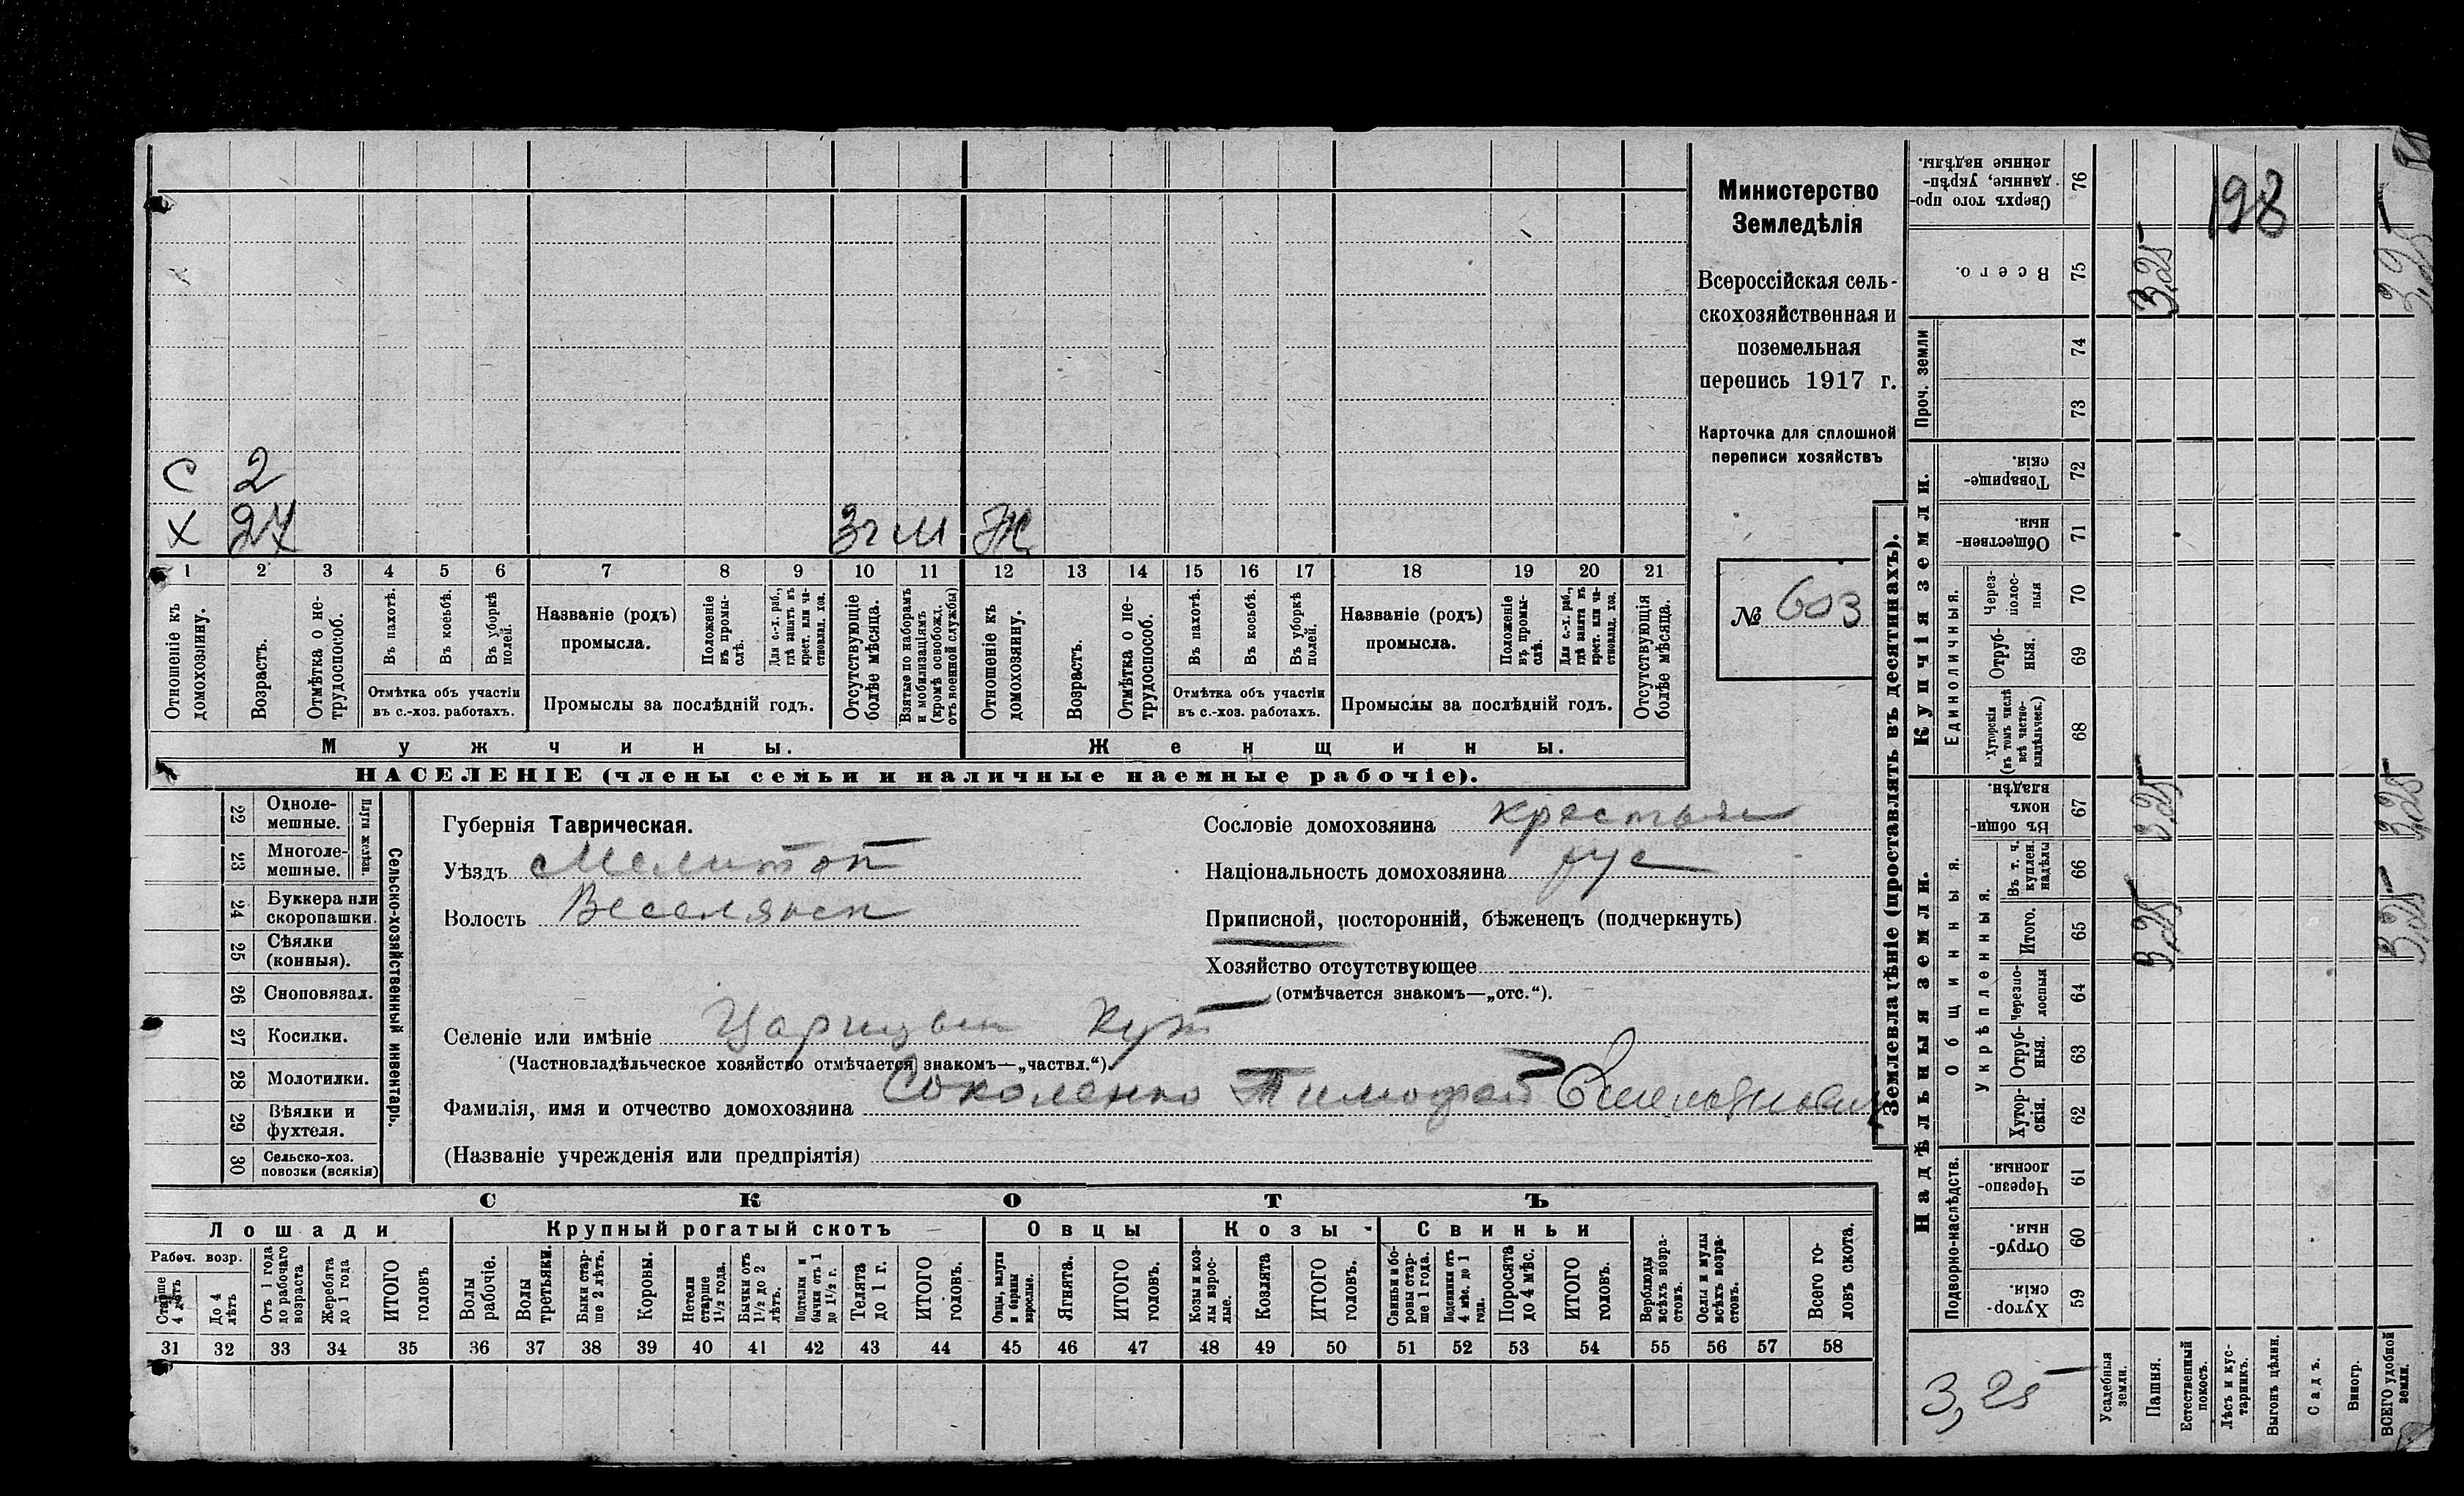 С 2
Х 27 3г м Ж
1 2 3 4 5 6 7 8 9 10 11 12 13 14 15 16 17 18 19 20 21
Отношеніе къ домохозяину.
Возрастъ.
Отмѣтка о не-
трудоспособ.
Въ пахотѣ.
Въ косьбѣ.
Въ уборкѣ полей.
Отмѣтка объ участіи
въ с.-хоз. работахъ.
Названіе (родъ)
промысла.
Положеніе въ промы-
слѣ.
Для с.-х. раб., гдѣ занятъ въ крест. или ча-
стновлад. хоз.
Промыслы за послѣдній годъ.
Отсутствующіе болѣе мѣсяца.
Взятые по наборамъ и мобилизаціямъ (кромѣ освобожд. отъ военной службы)
Отношеніе къ домохозяину.
Возрастъ.
Отмѣтка о не-
трудоспособ.
Въ пахотѣ.
Въ косьбѣ.
Въ уборкѣ полей.
Отмѣтка объ участіи
въ с.-хоз. работахъ.
Названіе (родъ)
промысла.
Положеніе въ промы-
слѣ.
Для с.-х. раб., гдѣ занята въ крест. или ча-
стновлад. хоз.
Промыслы за послѣдній годъ.
Отсутствующія болѣе мѣсяца.
Мужчины. Женщины.
НАСЕЛЕНІЕ (члены семьи и наличные наемные рабочіе).
Министерство
Земледѣлія
Всероссійская сель-
скохозяйственная и
поземельная
перепись 1917 г.
Карточка для сплошной
переписи хозяйствъ
№ 603
22 Одноле-
мешные.
23 Многоле-
мешные.
Плуги желѣзн.
24 Буккера или
скоропашки.
25 Сѣялки
(конныя).
26 Сноповязал.
27 Косилки.
28 Молотилки.
29 Вѣялки и
фухтеля.
30 Сельско-хоз.
повозки (всякія)
Сельско-хозяйственный инвентарь.
Губернія Таврическая.
Уѣздъ Мелитоп
Волость Веселянск
Сословіе домохозяина крестьян
Національность домохозяина рус
Приписной, посторонній, бѣженецъ (подчеркнуть)
Хозяйство отсутствующее
(отмѣчается знакомъ—„отс.“).
Селеніе или имѣніе Царицын Кут
(Частновладѣльческое хозяйство отмѣчается знакомъ—„частвл.“).
Фамилія, имя и отчество домохозяина Соколенко Тимофей
(Названіе учрежденія или предпріятія)
СКОТЪ
Лошади Крупный рогатый скотъ Овцы Козы Свиньи
Рабоч. возр.
Старше 4 лѣтъ
До 4 лѣтъ
Отъ 1 года до рабочаго возраста
Жеребята до 1 года
ИТОГО головъ
Волы рабочіе.
Волы третьяки.
Быки стар-
ше 2 лѣтъ.
Коровы.
Нетели старше 1½ года.
Бычки отъ 1½ до 2 лѣтъ.
Подтелки и бычки отъ 1 до 1½ г.
Телята до 1 г.
ИТОГО головъ.
Овцы, валухи и бараны взрослые.
Ягнята.
ИТОГО головъ.
Козы и коз-
лы взрос-
лые.
Козлята
ИТОГО головъ.
Свиньи и бо-
ровы стар-
ше 1 года.
Подсвинки отъ 4 мѣс. до 1 года.
Поросята до 4 мѣс.
ИТОГО головъ.
Верблюды всѣхъ возра-
стовъ.
Ослы и мулы всѣхъ возра-
стовъ.
Всего го-
ловъ скота.
31 32 33 34 35 36 37 38 39 40 41 42 43 44 45 46 47 48 49 50 51 52 53 54 55 56 57 58
Землевладѣніе (проставлять въ десятинахъ).
Надѣльныя земли.
Купчія земли.
Проч. земли
Подворно-наслѣдств.
Общинныя.
Укрѣпленныя.
Единоличныя.
59 Хутор-
скія.
60 Отруб-
ныя.
61 Черезпо-
лосныя.
62 Хутор-
скія.
63 Отруб-
ныя.
64 Черезпо-
лосныя
65 Итого. 3,25 3,25
66 Въ т. ч. куплен. надѣлы
67 Въ общи-
номъ владѣн. 3,25 3,25
68 Хуторскія (въ томъ числѣ всѣ частно-
владѣльческ.)
69 Отруб-
ныя.
70 Через-
полос-
ныя
71 Обществен-
ныя.
72 Товарище-
скія.
73
74
75 Всего. 3,25 3,25
76 Сверхъ того про-
данные, укрѣп-
ленные надѣлы.
198
3,25
Усадебныя земли.
Пашня.
Естественный покосъ.
Лѣсъ и кус-
тарникъ.
Выгонъ цѣлин.
Садъ.
Виногр.
ВСЕГО удобной земли.